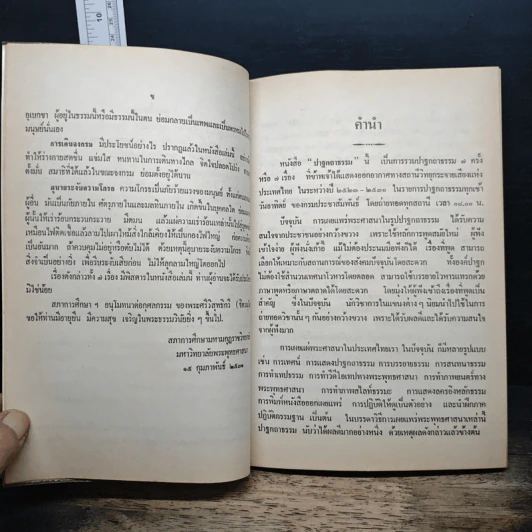 ๑๐
ข
อุเบกขา ผู้อยู่ในธรรมนี้หรือมีธรรมนี้ในตน ย่อมกลายเป็นเทพและเป็นพรหมได้
มนุษย์นั่นเอง
การเดินจงกรม มีประโยชน์อย่างไร ปรากฏแล้วในหนังสือเล่มนี้
ทำให้ร่างกายสดชื่น แจ่มใส ทนทานในการเดินทางไกล จิตใจปลอดโปร่ง
ตั้งมั่น สมาธิที่ได้แล้วในขณะจงกรม ย่อมตั้งอยู่ได้นาน
อุบายระงับความโกรธ ความโกรธเป็นภัยร้ายแรงของมนุษย์ ทั้งแก่ตน
ผู้อื่น มีแม้แก่ภายใน ศัตรูภายในและมลทินภายใน เกิดขึ้นในบุคคลใด ย่อมเผา
ผู้นั้นให้เร่าร้อนกระวนกระวาย มืดมน แล้วแผ่ความเร่าร้อนเหล่านั้นไปยังผู้อื่น
เหมือนไฟติดเชื้อแล้วลามไปเผาไหม้สิ่งใกล้เคียงให้เป็นกองไฟใหญ่ ต่อความ
เป็นอันมาก ถ้าควบคุมไม่อยู่หรือดับไม่ได้ ด้วยเหตุนี้อุบายระงับความโกรธ
สิ่งจำเป็นอย่างยิ่ง เพื่อมีระงับเสียก่อน ไม่ให้ลุกลามใหญ่โตออกไป
เรื่องดังกล่าวทั้ง ๗ เรื่อง มีพิสดารในหนังสือเล่มนี้ ท่านผู้อ่านจะได้รับประโยชน์
มิใช่น้อย
สภาการศึกษา ฯ อนุโมทนาต่อกุศลกรรม ของพระศรีวิสุทธิกวี
ขอให้ท่านมีอายุยืน มีความสุข เจริญในพระธรรมวินัยยิ่ง ๆ ขึ้นไป.
สภาการศึกษามหามกุฏราชวิทยาลัย
มหาวิทยาลัยพระพุทธศาสนา
๑๕ กุมภาพันธ์ ๒๕๓๑
คำนำ
หนังสือ “ปาฐกถาธรรม” นี้ เป็นการรวบปาฐกถาธรรม ๗ ครั้ง
หรือ ๗ เรื่อง ที่ข้าพเจ้าได้แสดงออกอากาศทางสถานีวิทยุกระจายเสียงแห่ง
ประเทศไทย ในระหว่างปี ๒๕๒๓-๒๕๓๐ ในรายการปาฐกถาธรรมทุกเช้า
วันอาทิตย์ ของกรมประชาสัมพันธ์ โดยถ่ายทอดทุกสถานี เวลา ๐๘.๐๐ น.
ปัจจุบัน การเผยแพร่พระศาสนาในรูปปาฐกถาธรรม ได้รับความ
สนใจจากประชาชนอย่างกว้างขวาง เพราะใช้หลักการพูดสมัยใหม่ ผู้ฟัง
เข้าใจง่าย ผู้ฟังนั่งเก้าอี้ แม้ไม่ต้องประนมมือฟังก็ได้ เรื่องที่พูด สามารถ
เลือกให้เหมาะกับสถานการณ์ของสังคมปัจจุบันโดยสะดวก ที่องค์ปาฐก
ไม่ต้องใช้สำนวนเทศนาโวหารโดยตลอด สามารถใช้บรรยายโวหารแทรกด้วย
ภาษาพูดหรือภาษาตลาดได้โดยสะดวก โดยมุ่งให้ผู้ฟังเข้าถึงเรื่องที่พูดเป็น
สำคัญ ซึ่งในปัจจุบัน นักวิชาการในแขนงต่าง ๆ นิยมนำไปใช้ในการ
ถ่ายทอดวิชานั้น ๆ กันอย่างกว้างขวาง เพราะได้รับผลดีและได้รับความสนใจ
จากผู้ฟังมาก
การเผยแผ่พระศาสนาในประเทศไทยเรา ในปัจจุบัน ก็มีหลายรูปแบบ
เช่น การเทศน์ การแสดงปาฐกถาธรรม การบรรยายธรรม การสนทนาธรรม
การทำเทปธรรม การทำวีดีโอเทปทางพระพุทธศาสนา การทำภาพยนตร์ทาง
พระพุทธศาสนา การทำภาพสไลด์ธรรมะ การแสดงละครอิงหลักธรรม
การพิมพ์หนังสือออกเผยแพร่ การปฏิบัติให้ดูเป็นตัวอย่าง และนำฝึกภาค
ปฏิบัติกรรมฐาน เป็นต้น ในบรรดาวิธีการเผยแผ่พระพุทธศาสนาเหล่านี้
ปาฐกถาธรรม นับว่าได้ผลดีมากอย่างหนึ่ง ด้วยเหตุผลดังกล่าวแล้วข้างต้น